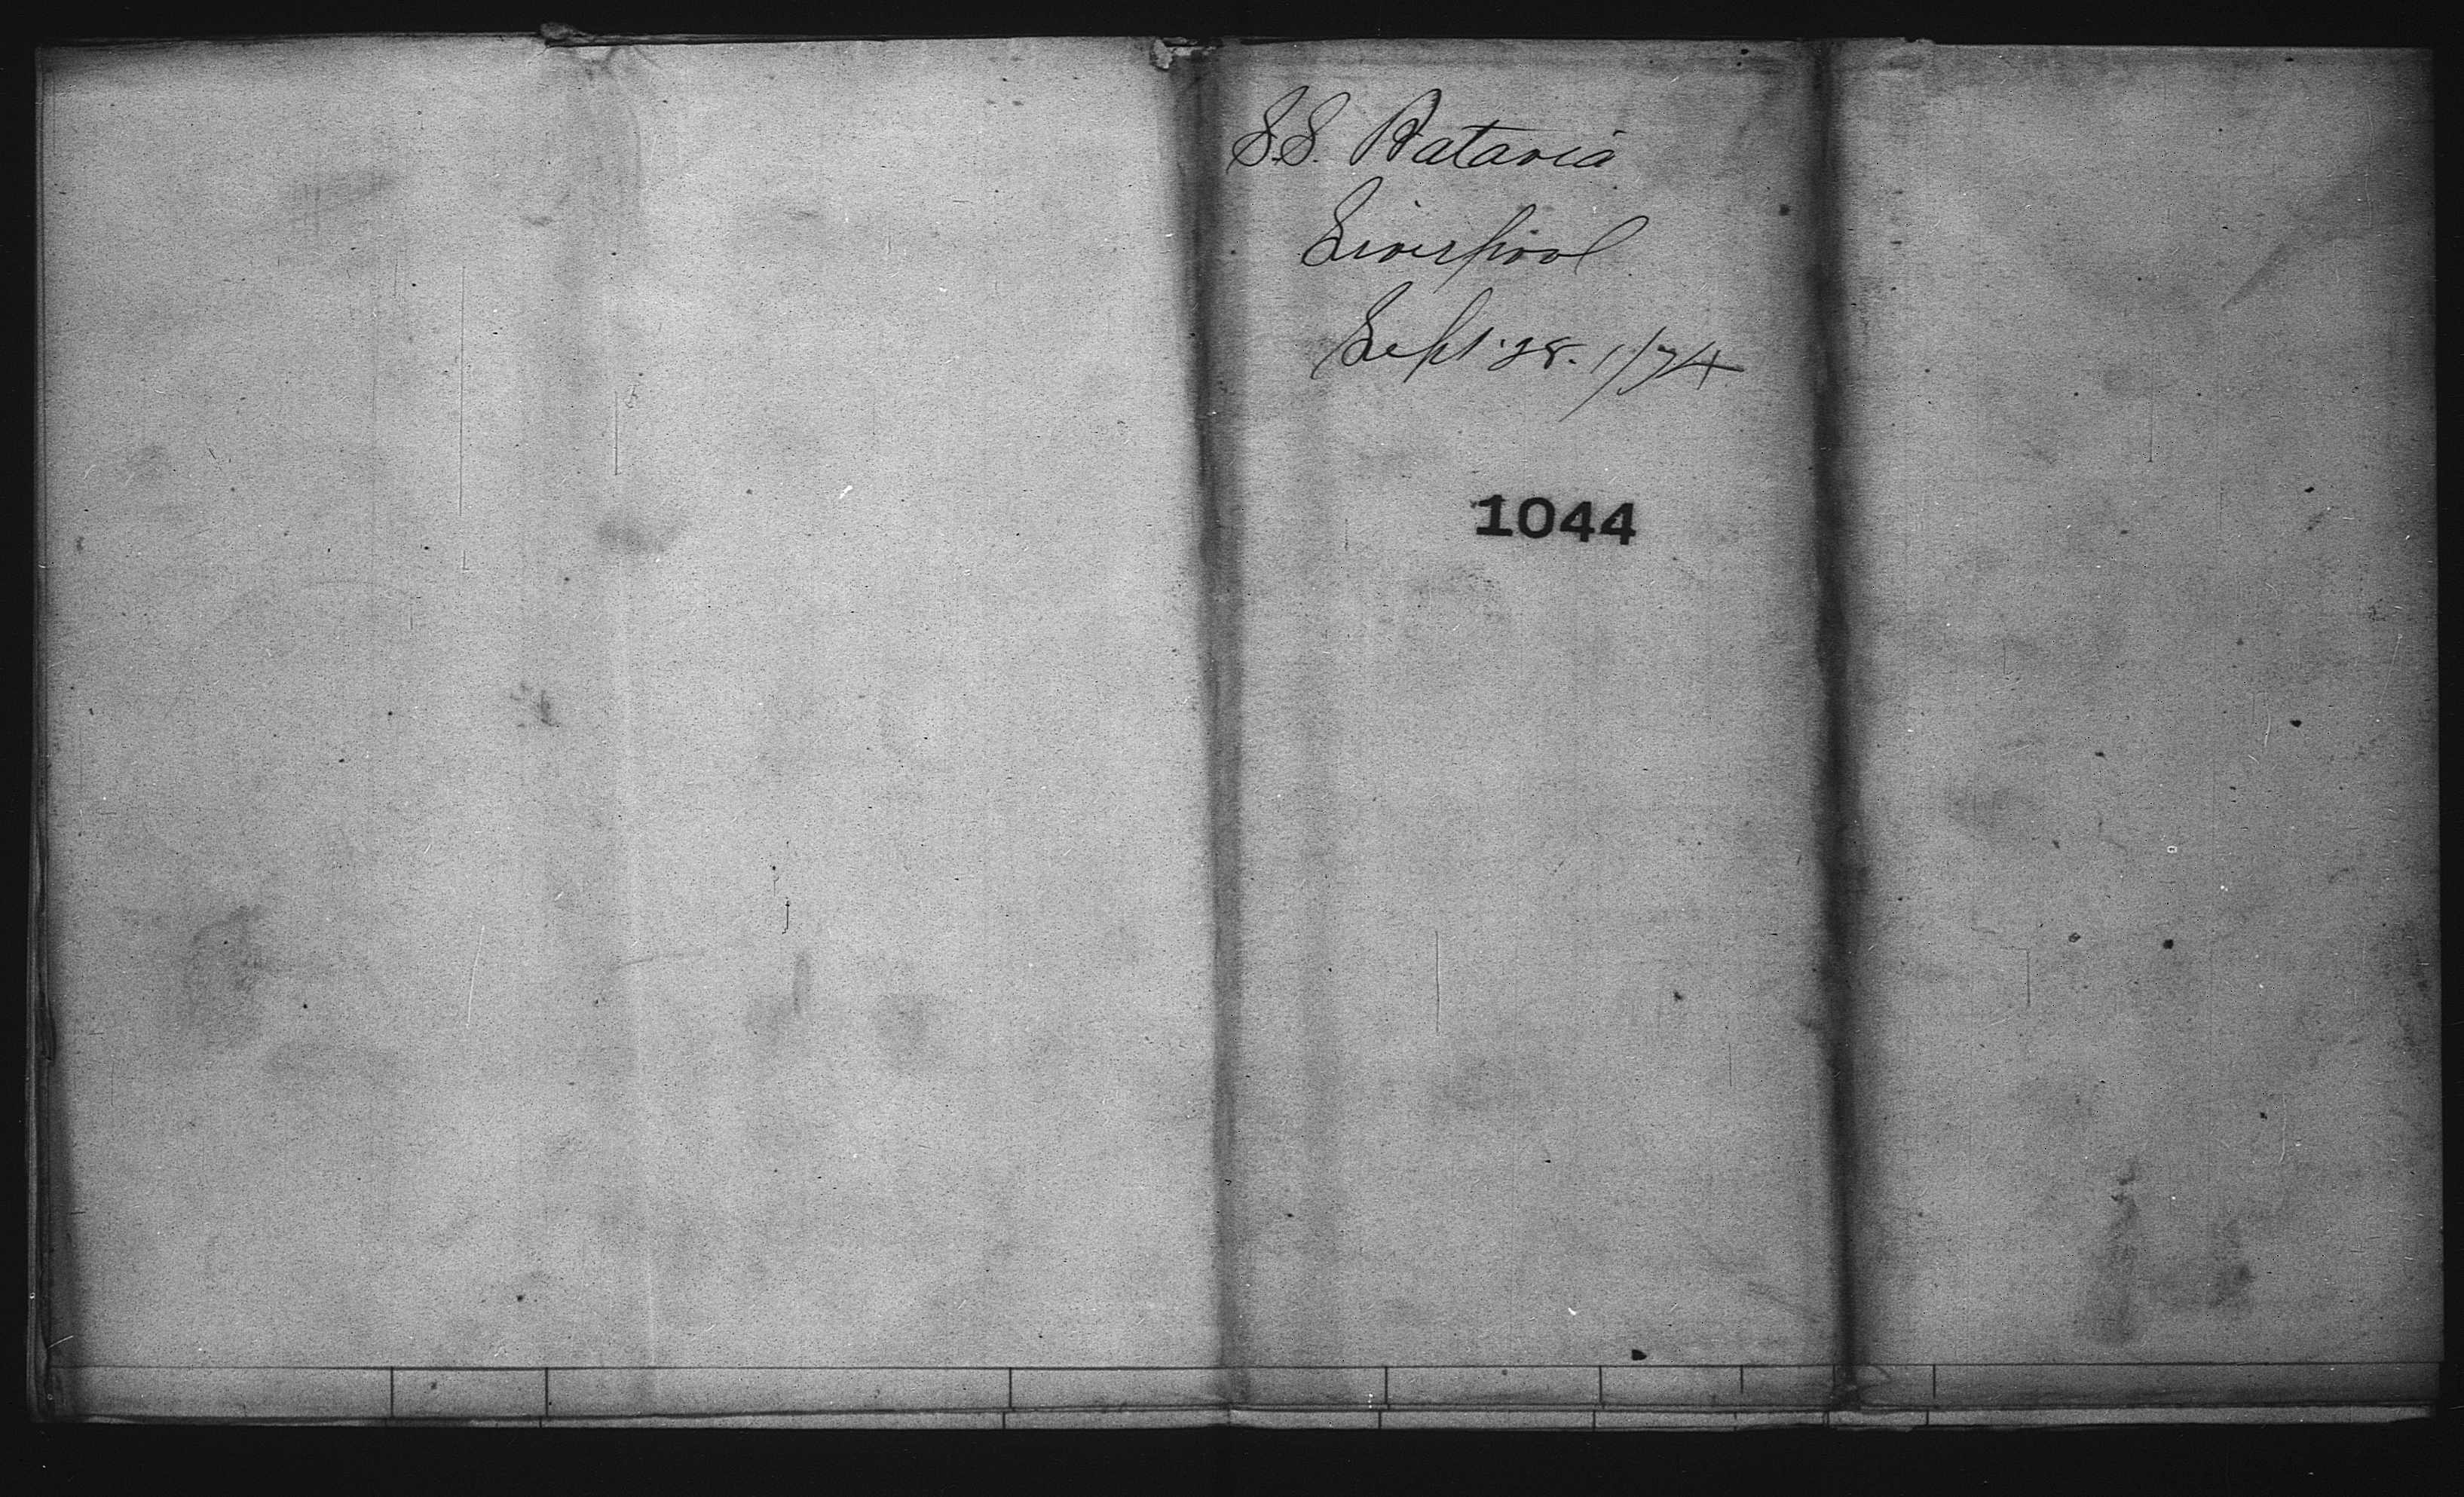 S.S. Batavia
Liverpool
Sept. 28. 1/74
1044